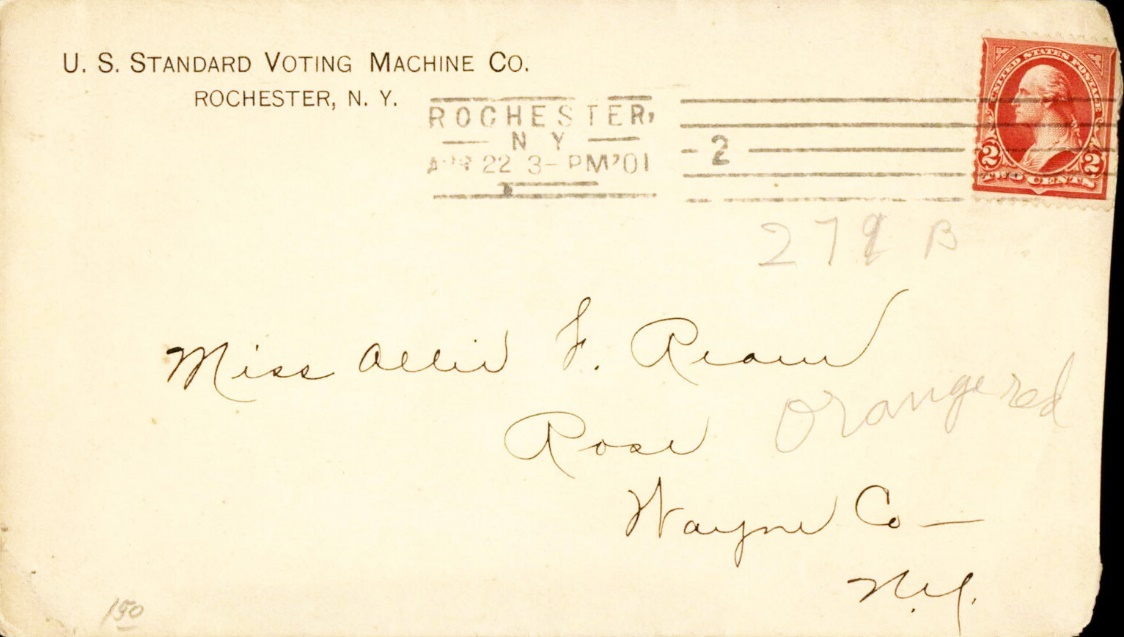 U. S. STANDARD VOTING MACHINE CO.
ROCHESTER, N. Y.
ROCHESTER,
N Y
APR 22 3-PM '01
2
UNITED STATES POSTAGE
2 2
TWO CENTS
279 B
Miss Allie F.
orange red
Rose
Wayne Co
N.Y.
150